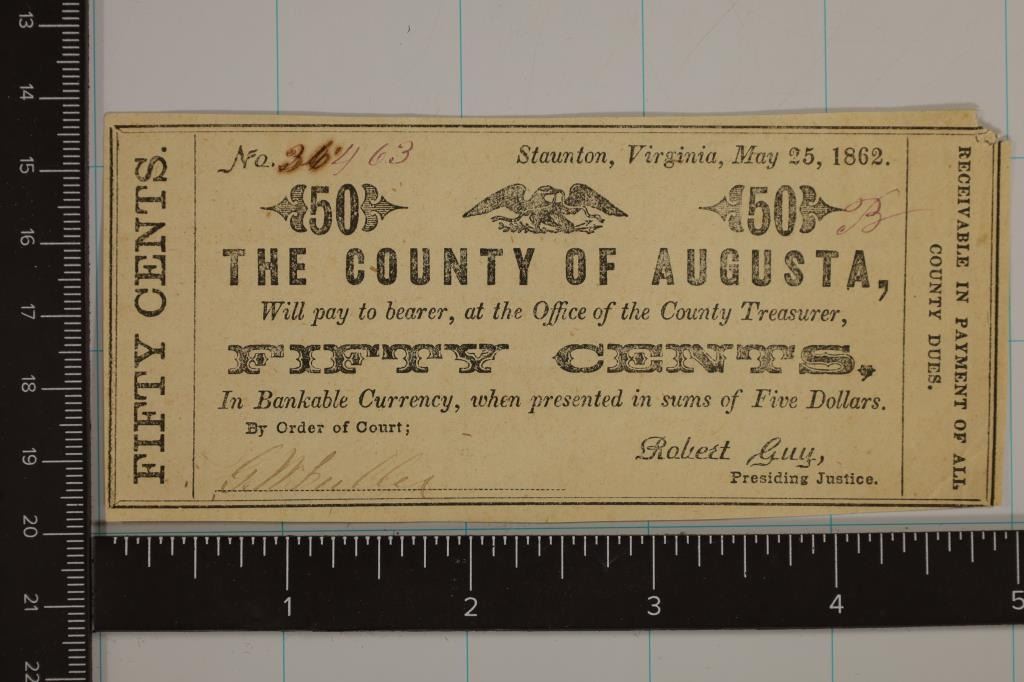 FIFTY CENTS.
No. 36463
Staunton, Virginia, May 25, 1862.
50 50 B
THE COUNTY OF AUGUSTA,
Will pay to bearer, at the Office of the County Treasurer,
FIFTY CENTS,
In Bankable Currency, when presented in sums of Five Dollars.
By Order of Court;
Robert Guy,
Presiding Justice.
RECEIVABLE IN PAYMENT OF ALL
COUNTY DUES.
13
14
15
16
17
18
19
20
21
22
1 2 3 4 5